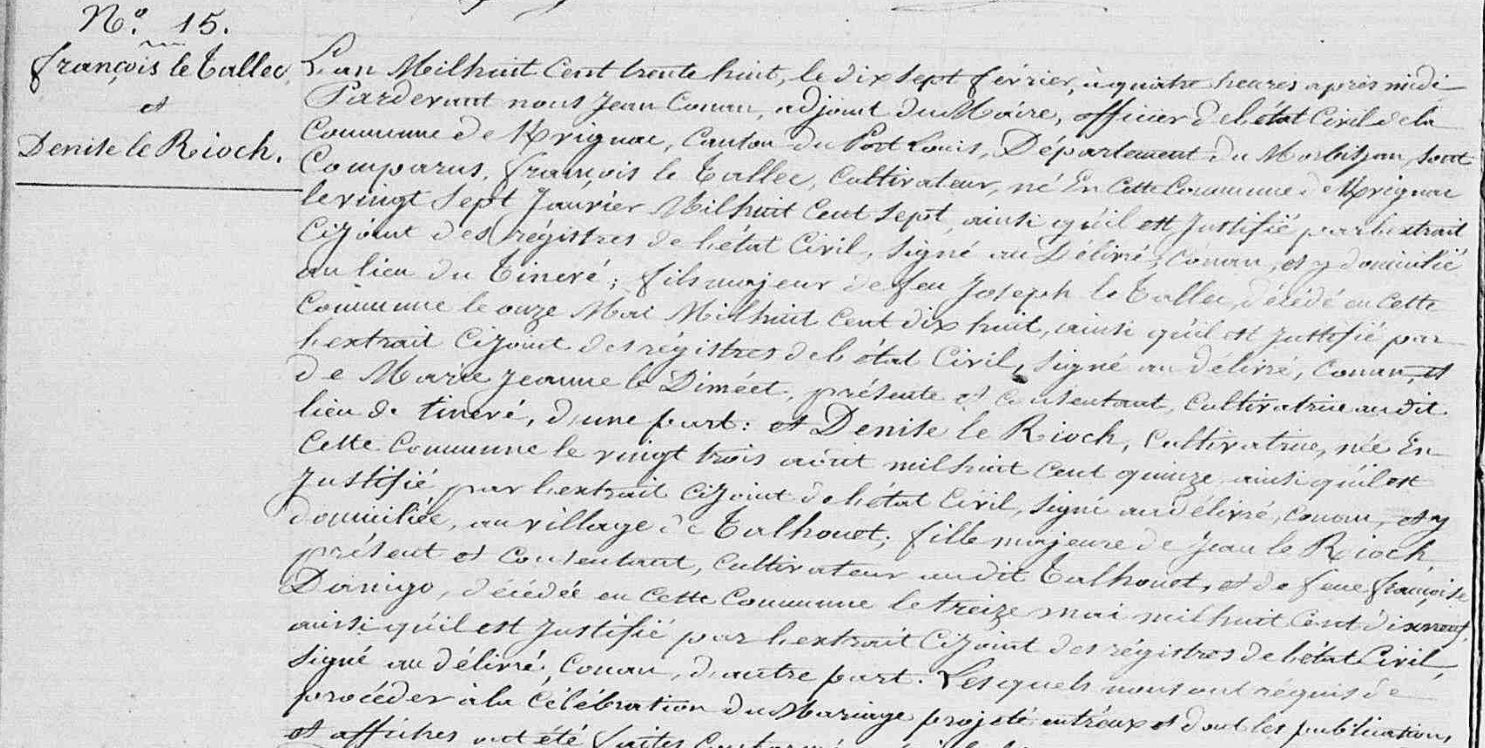 N.º 15.
françois le Tallec,
et
Denise le Rioch.
L'an Mil huit Cent trente huit, le dix sept février, à quatre heures après midi
Pardevant nous Jean Conan, adjoint du Maire, officier de l'état Civil de la
Commune de Krignac, Canton du Port Louis, Département du Morbihan, sont
Comparus, françois le Tallec, Cultivateur, né En Cette Commune de Krignac
le vingt Sept Janvier Mil huit Cent Sept, ainsi qu'il est Justifié par l'extrait
Cijoint des régistres de l'état Civil, signé au Délivré, Conan, et y domicilié
au lieu du Tineré; fils majeur de feu Joseph le Tallec, décédé en Cette
Commune le onze Mai Mil huit Cent dix huit, ainsi qu'il est Justifié par
l'extrait Cijoint des régistres de l'état Civil, signé au délivré, Conan, et
de Marie Jeanne le Diméet, présente et consentant, Cultivatrice audit
lieu de tineré, d'une part: et Denise le Rioch, Cultivatrice, née En
Cette Commune le vingt trois août mil huit Cent quinze ainsi qu'il est
Justifié par l'extrait Cijoint de l'état Civil, signé au délivré, conan, et y
domiciliée, au village de Talhouet; fille majeure de Jean le Rioch
présent et Consentant, Cultivateur audit Talhouet, et de feue françoise
Danigo, décédée en Cette Commune le treize mai mil huit Cent dix neuf,
ainsi qu'il est Justifié par l'extrait Cijoint des régistres de l'état Civil,
signé au délivré, Conan, d'autre part. Lesquels nous ont réquis de
procéder à la Célébration du Mariage projeté entr'eux et dont les publications
et affiches ont été faites